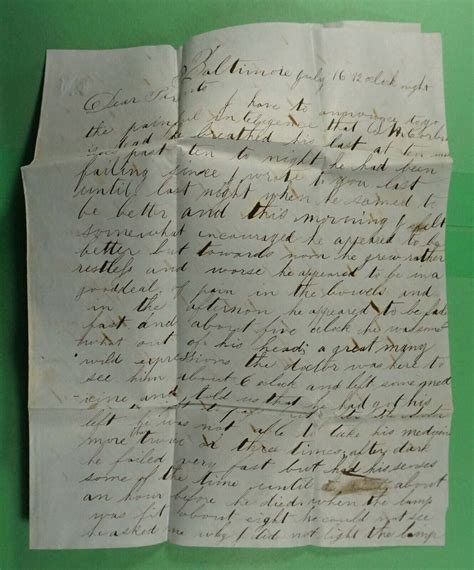 Baltimore July 16 12 oclock night
Dear Parents I have to announce to you
the painful intelligence that
is dead he breathed his last at ten
past ten to night he had been
failing since I wrote to you last
until last night when he seemed to
be better and this morning I felt
somewhat encouraged he appeared to be
better but towards noon he grew rather
restless and worse he appeared to be in a
good deal of pain in the bowels and
in the afternoon he appeared to be
fast and about five oclock he was
out of his head a great many
wild expressions the doctor was here to
see him about 6 oclock and left some med
icine and told us that he had got his
left he was not able to take his medicine
more than twice or three times after dark
he failed very fast but had his senses
some of the time until about
an hour before he died when the lamp
was lit about eight he could not see
he asked me why I did not light the lamp